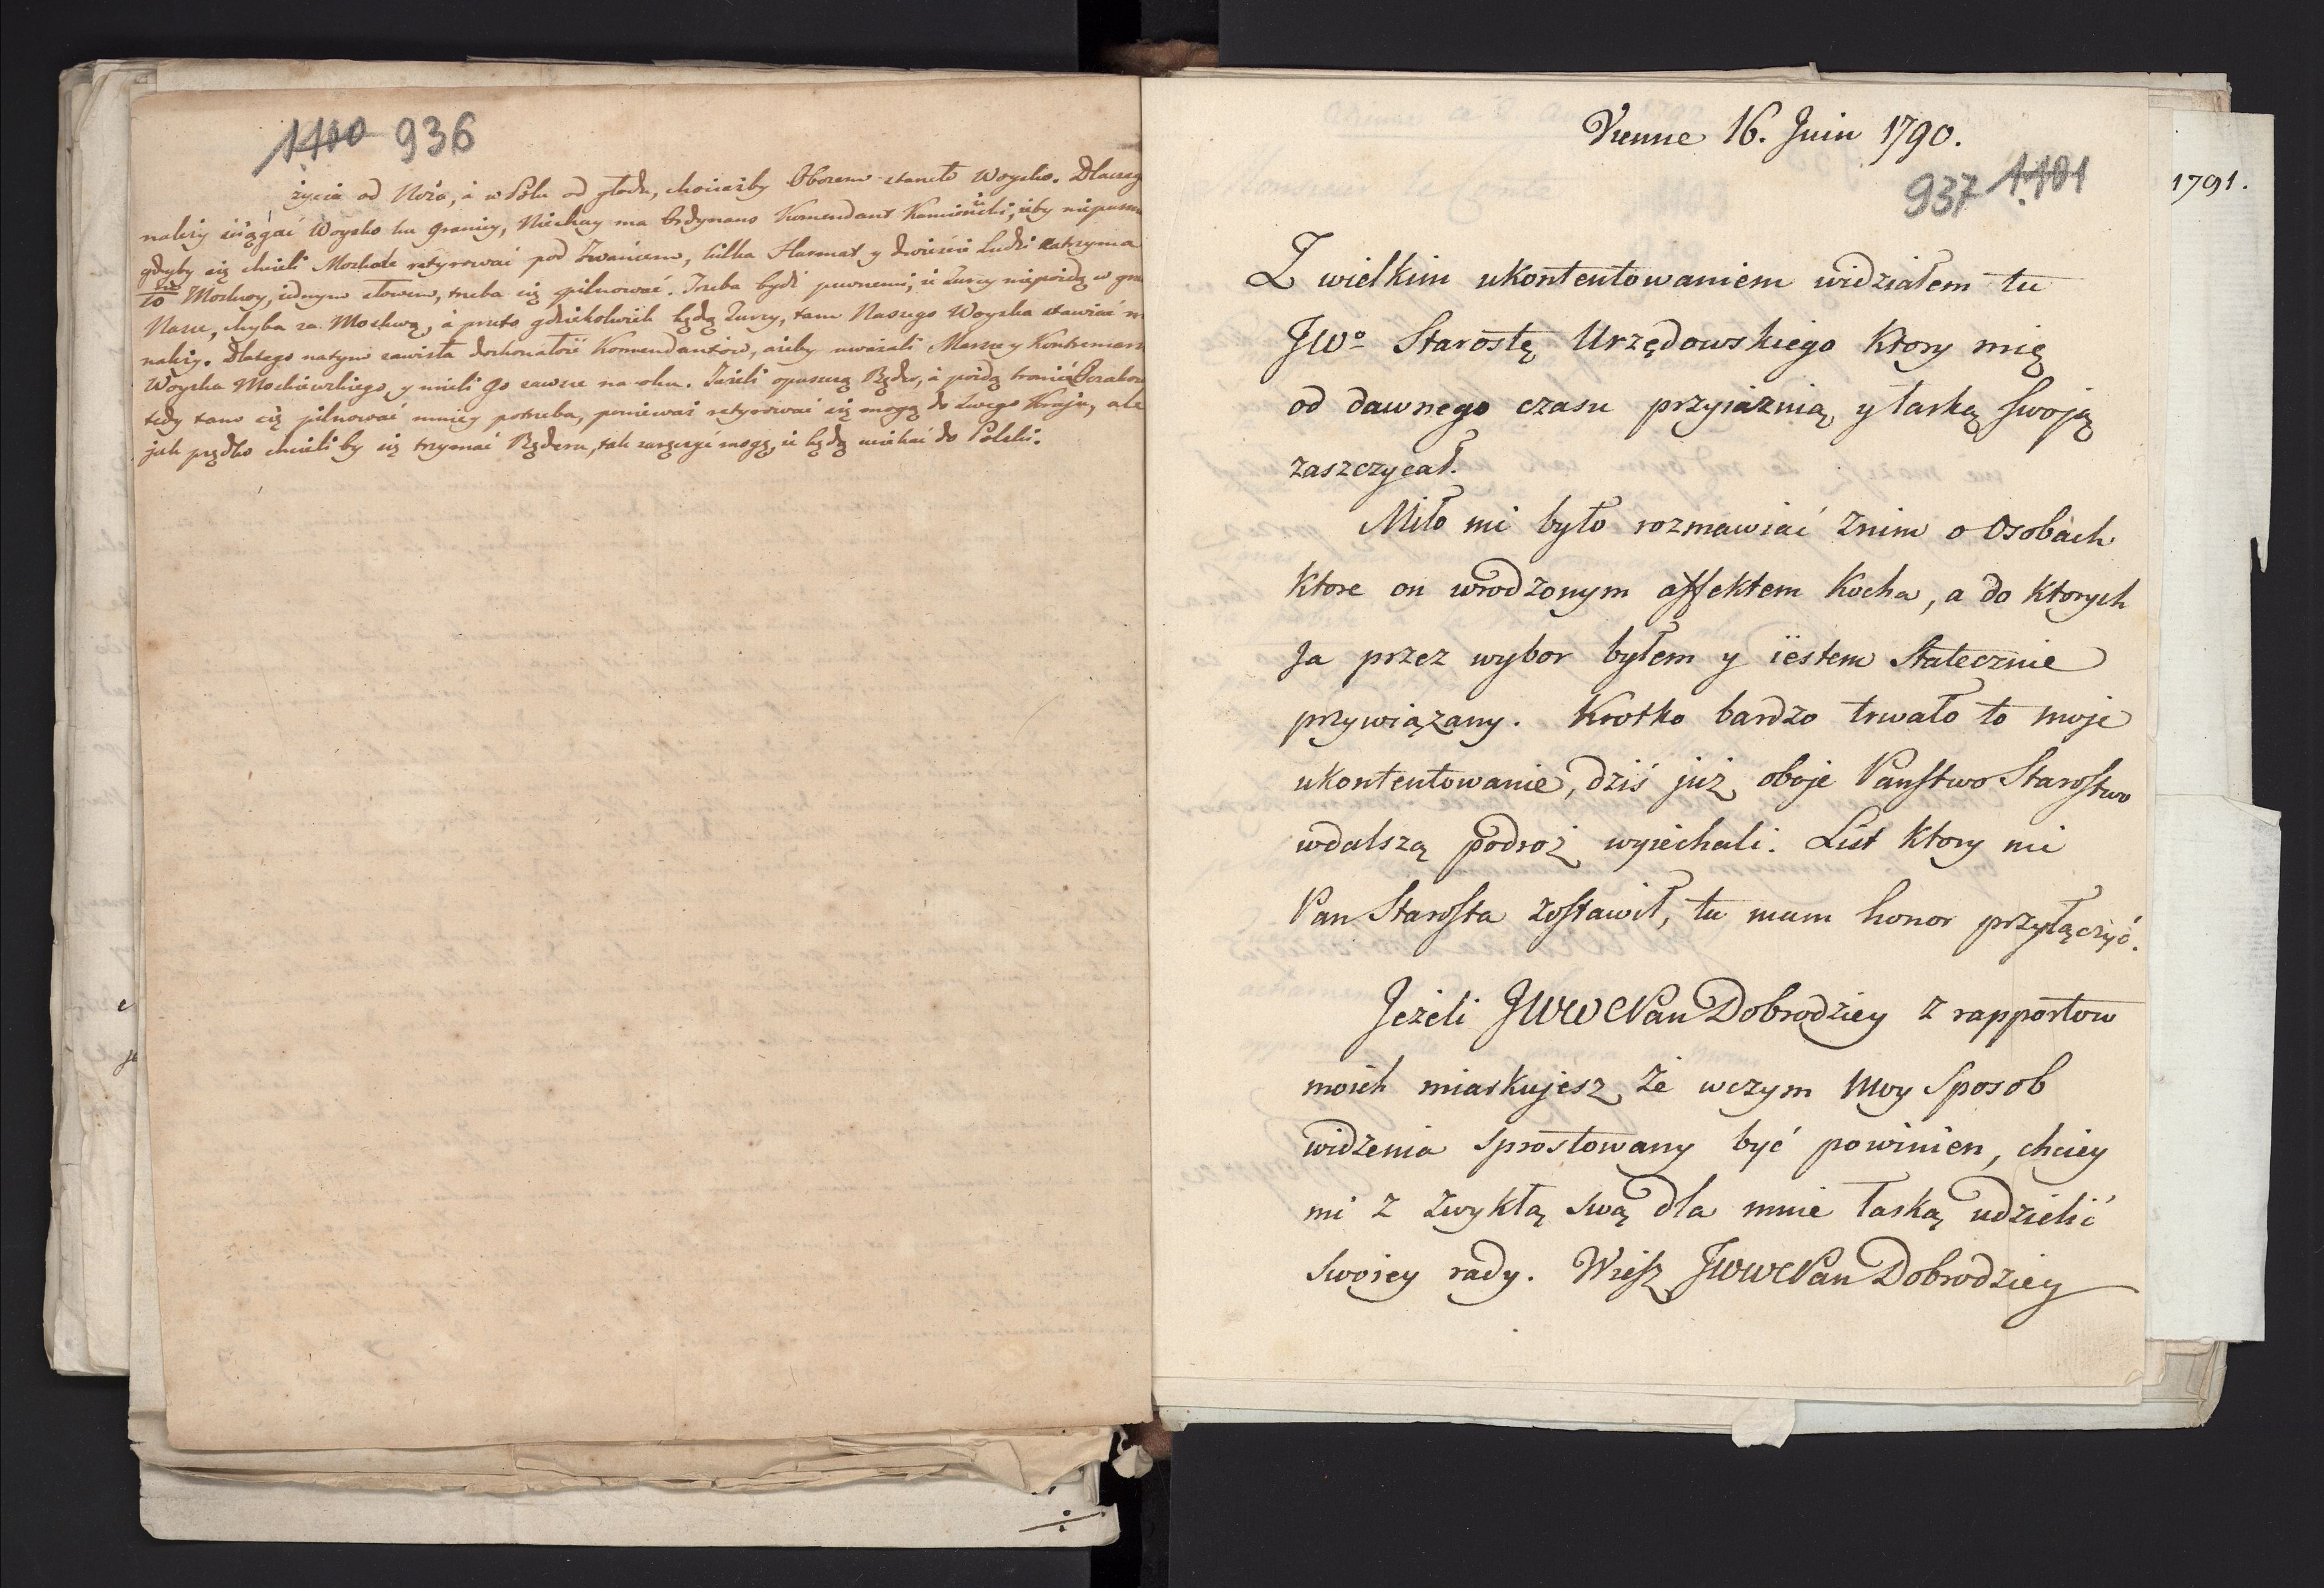 1100 936
życia od Noża, i w Polu od głodu, chociażby Obozem stanęło Woysko. Dlaczeg
należy sciągać Woysko ku granicy, Niechay ma Ordynans Komendant Kamieniecki, żeby
gdyby się chcieli Moskale retyrować pod Zwańcem, kilka Harmat y dwieście Ludzi zatrzyma
to Moskwy, iednym słowem, trzeba się pilnować. Trzeba bydź pewnemi, iż Turcy niepoidą w
Nasze, chyba za Moskwą, a przeto gdziekolwiek będą Turcy, tam Naszego Woyska stawiać
należy. Dlatego natym zawisła doskonałość Komendantów, ażeby uważali Marsze y Kontremarsz
Woyska Moskiewskiego, y mieli go zawsze na oku. Jeżeli opuszczą Będer, a poidą bronić
tedy tam się pilnować mniey potrzeba, ponieważ retyrować się mogą do swego Kraju, ale
jak prędko chcieli by się trzymać Benderu, tak zaręczyć mogę, iż będą uciekać do Polski.
Vienne 16. Juin 1790.
937 1101
1791.
Z wielkim ukontentowaniem widziałem tu
JWo Starostę Urzędowskiego ktory mię
od dawnego czasu przyiaznią y łaską swoją
zaszczycał.
Miło mi było rozmawiać znim o Osobach
ktore on wrodzonym affektem kocha, a do ktorych
Ja przez wybor byłem y iestem statecznie
przywiązany. Krotko bardzo trwało to moje
ukontentowanie, dziś już oboje Panstwo Starostwo
wdalszą podroż wyiechali. List ktory mi
Pan Starosta zostawił, tu mam honor przyłączyć.
Jeżeli JWW Pan Dobrodziey z rapportow
moich miarkujesz że wczym moy sposob
widzenia sprostowany być powinien, chciey
mi z zwykłą swą dla mnie łaską udzielić
swoiey rady. Wiesz JWW Pan Dobrodziey